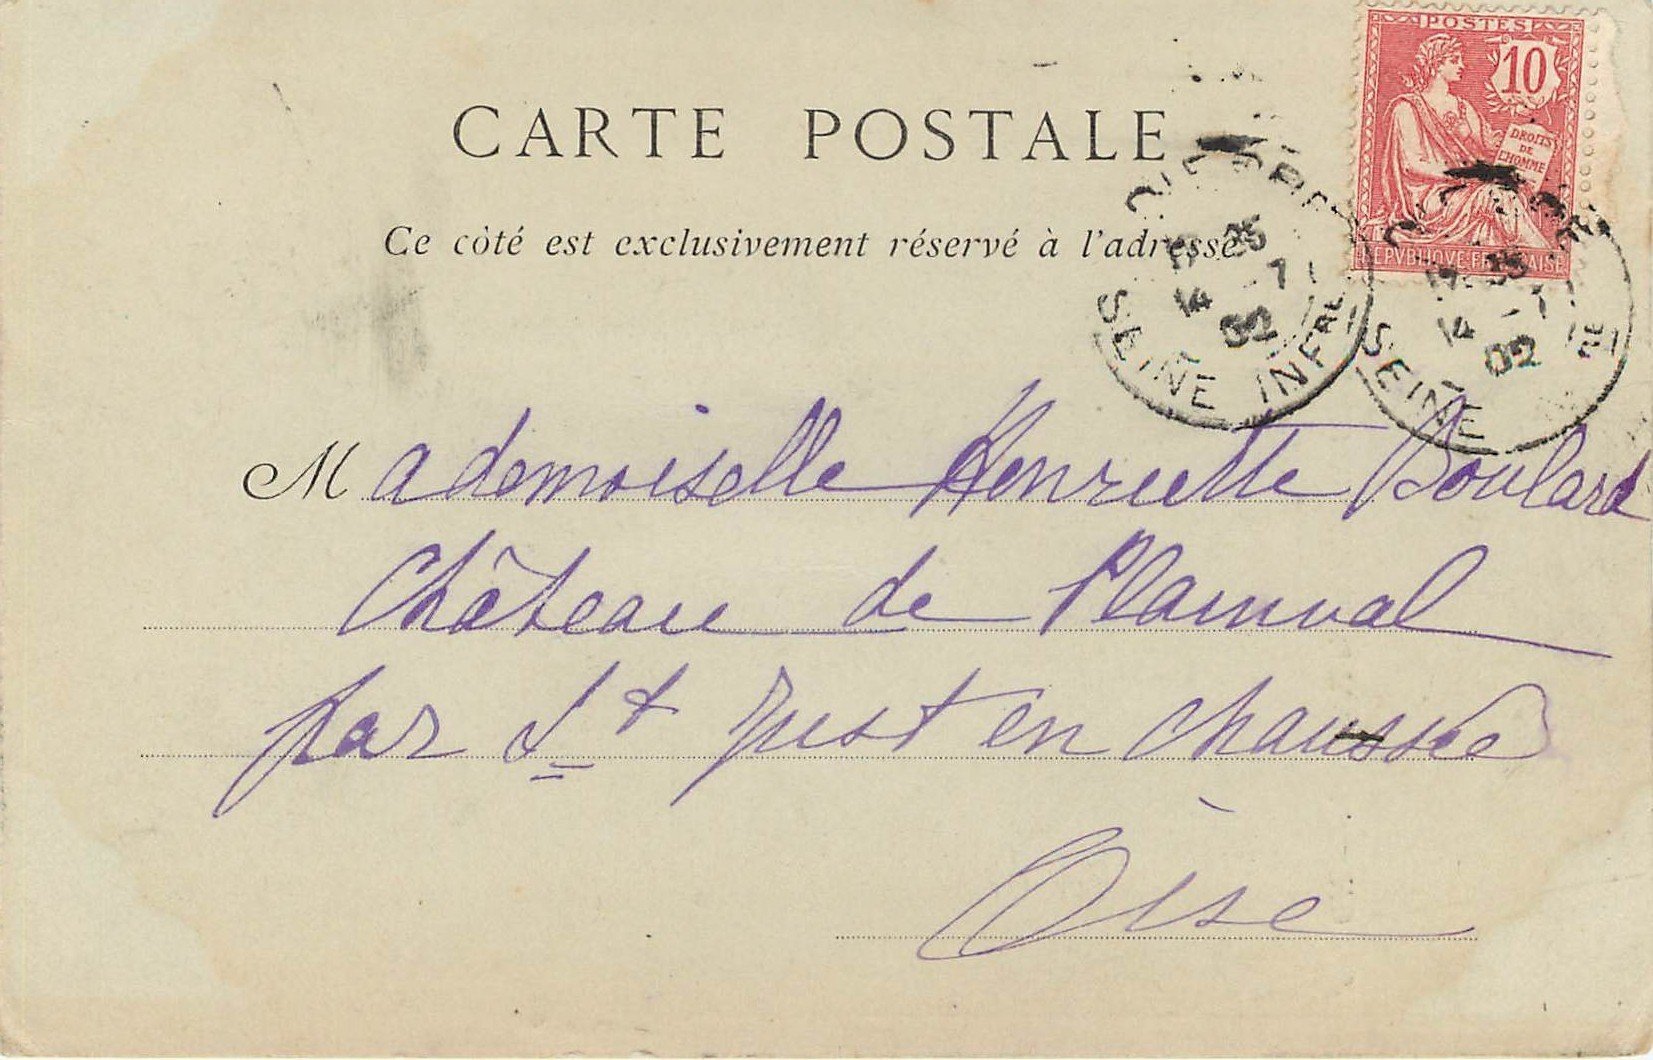 POSTES
10
DROITS
DE
L'HOMME
CARTE POSTALE
Ce côté est exclusivement réservé à l'adresse
SEINE INFRE
14
02
SEINE
14
02
Mademoiselle Henriette Boulard
Château de Plainval
par St Just en chaussée
Oise